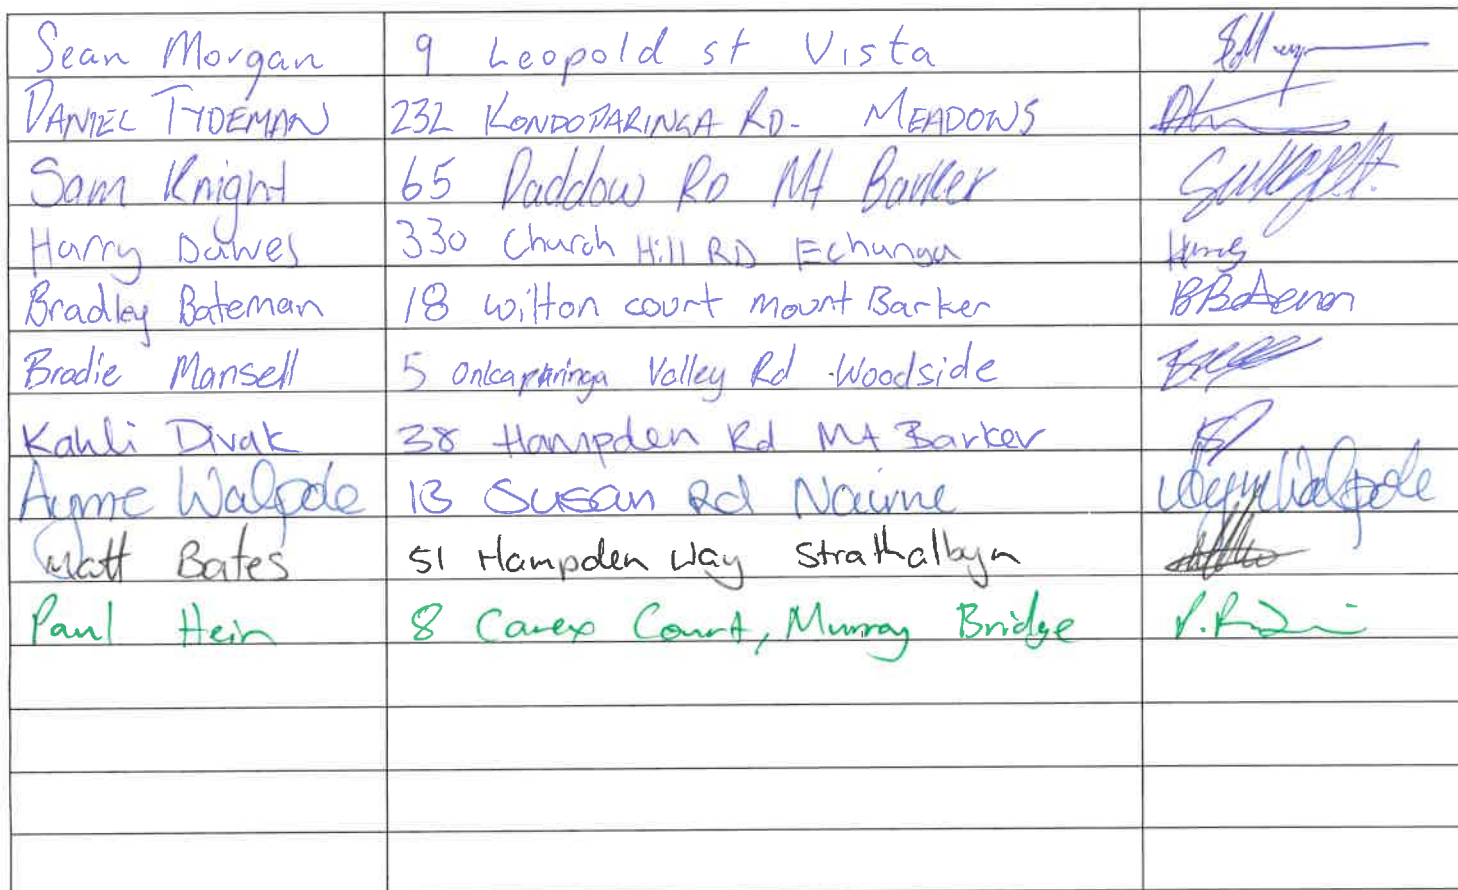 Sean Morgan 9 Leopold st Vista
DANIEL TYDEMAN 232 KONDOPARINGA RD. MEADOWS
Sam Knight 65 Paddow RD Mt Barker
Harry Dawes 330 Church Hill RD Echunga
Bradley Bateman 18 wilton court mount Barker BBateman
Brodie Mansell 5 Onkaparinga Valley Rd Woodside
Kahli Divak 38 Hampden Rd Mt Barker
Ayme Walpole 13 Susan Rd Nairne Ayme Walpole
Matt Bates 51 Hampden Way Strathalbyn
Paul Hein 8 Carex Court, Murray Bridge